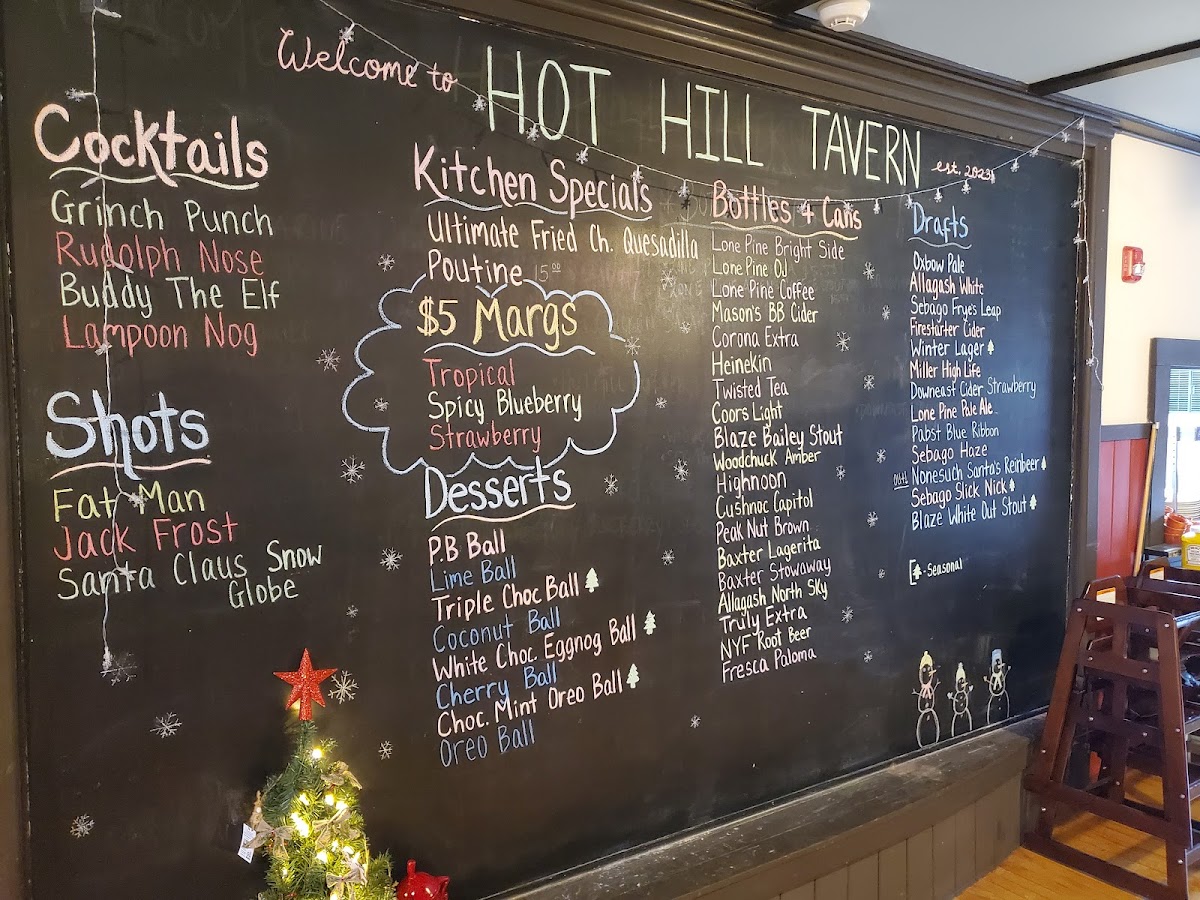 Welcome to HOT HILL TAVERN est. 2023
Cocktails
Grinch Punch
Rudolph Nose
Buddy The Elf
Lampoon Nog
Shots
Fat Man
Jack Frost
Santa Claus Snow
Globe
Kitchen Specials
Ultimate Fried Ch. Quesadilla
Poutine 15.00
$5 Margs
Tropical
Spicy Blueberry
Strawberry
Desserts
P.B Ball
Lime Ball
Triple Choc Ball
Coconut Ball
White Choc. Eggnog Ball
Cherry Ball
Choc. Mint Oreo Ball
Oreo Ball
Bottles & Cans
Lone Pine Bright Side
Lone Pine OJ
Lone Pine Coffee
Mason's BB Cider
Corona Extra
Heinekin
Twisted Tea
Coors Light
Blaze Bailey Stout
Woodchuck Amber
Highnoon
Cushnoc Capitol
Peak Nut Brown
Baxter Lagerita
Baxter Stowaway
Allagash North Sky
Truly Extra
NYF Root Beer
Fresca Paloma
Drafts
Oxbow Pale
Allagash White
Sebago Frye's Leap
Firestarter Cider
Winter Lager
Miller High Life
Downeast Cider Strawberry
Lone Pine Pale Ale
Pabst Blue Ribbon
Sebago Haze
Nonesuch Santa's Reinbeer
Sebago Slick Nick
Blaze White Out Stout
- Seasonal